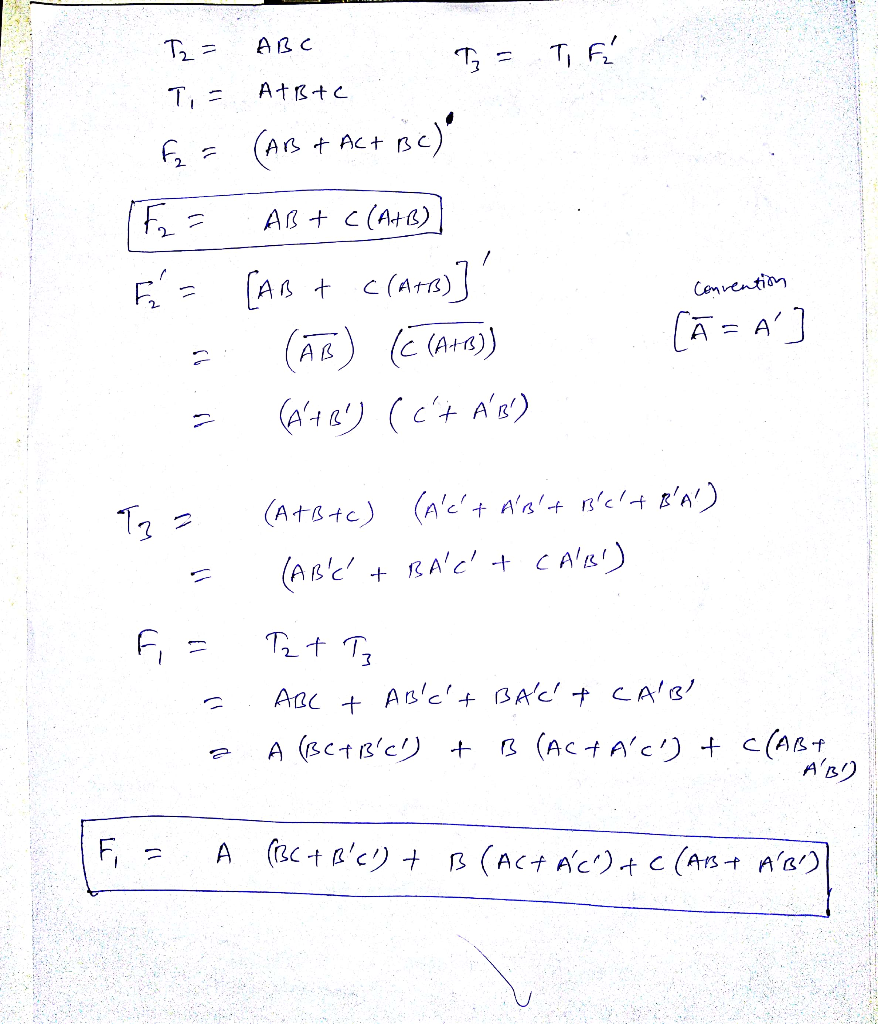 T₂ = ABC
T₃ = T₁ F₂'
T₁ = A+B+C
F₂ = (AB + AC + BC)
F₂ = AB + C(A+B)
F₂' = [AB + C(A+B)]'
Convention
= (A̅B̅) (C̅ ̅(̅A̅+̅B̅)̅)
[A̅ = A']
= (A'+B') (C'+ A'B')
T₃ = (A+B+C) (A'C' + A'B' + B'C' + B'A')
= (AB'C' + BA'C' + CA'B')
F₁ = T₂ + T₃
= ABC + AB'C' + BA'C' + CA'B'
= A (BC+B'C') + B (AC + A'C') + C(AB+
A'B')
F₁ = A (BC + B'C') + B (AC + A'C') + C (AB + A'B')